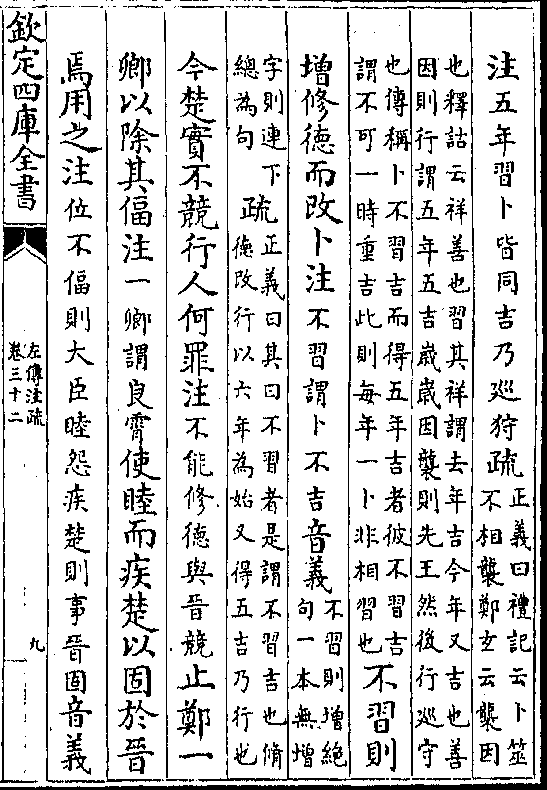 注五年習卜皆同吉乃巡狩疏正義曰禮記云卜筮
不相襲鄭玄云襲因
也釋詁云祥善也習其祥謂去年吉今年又吉也善
因則行謂五年五吉嵗嵗因襲則先王然後行巡守
也傳稱卜不習吉而得五年吉者彼不習吉
謂不可一時重吉此則每年一卜非相習也不習則
增修德而改卜注不習謂卜不吉音義不習則增絶
句一本無增
字則連下
總為句疏正義曰其曰不習者是謂不習吉也脩
德改行以六年為始又得五吉乃行也
今楚實不競行人何罪注不能修德與晉競止鄭一
卿以除其偪注一卿謂良霄使睦而疾楚以固於晉
焉用之注位不偪則大臣睦怨疾楚則事晉固音義
欽定四庫全書
左傳注疏
卷三十二
九